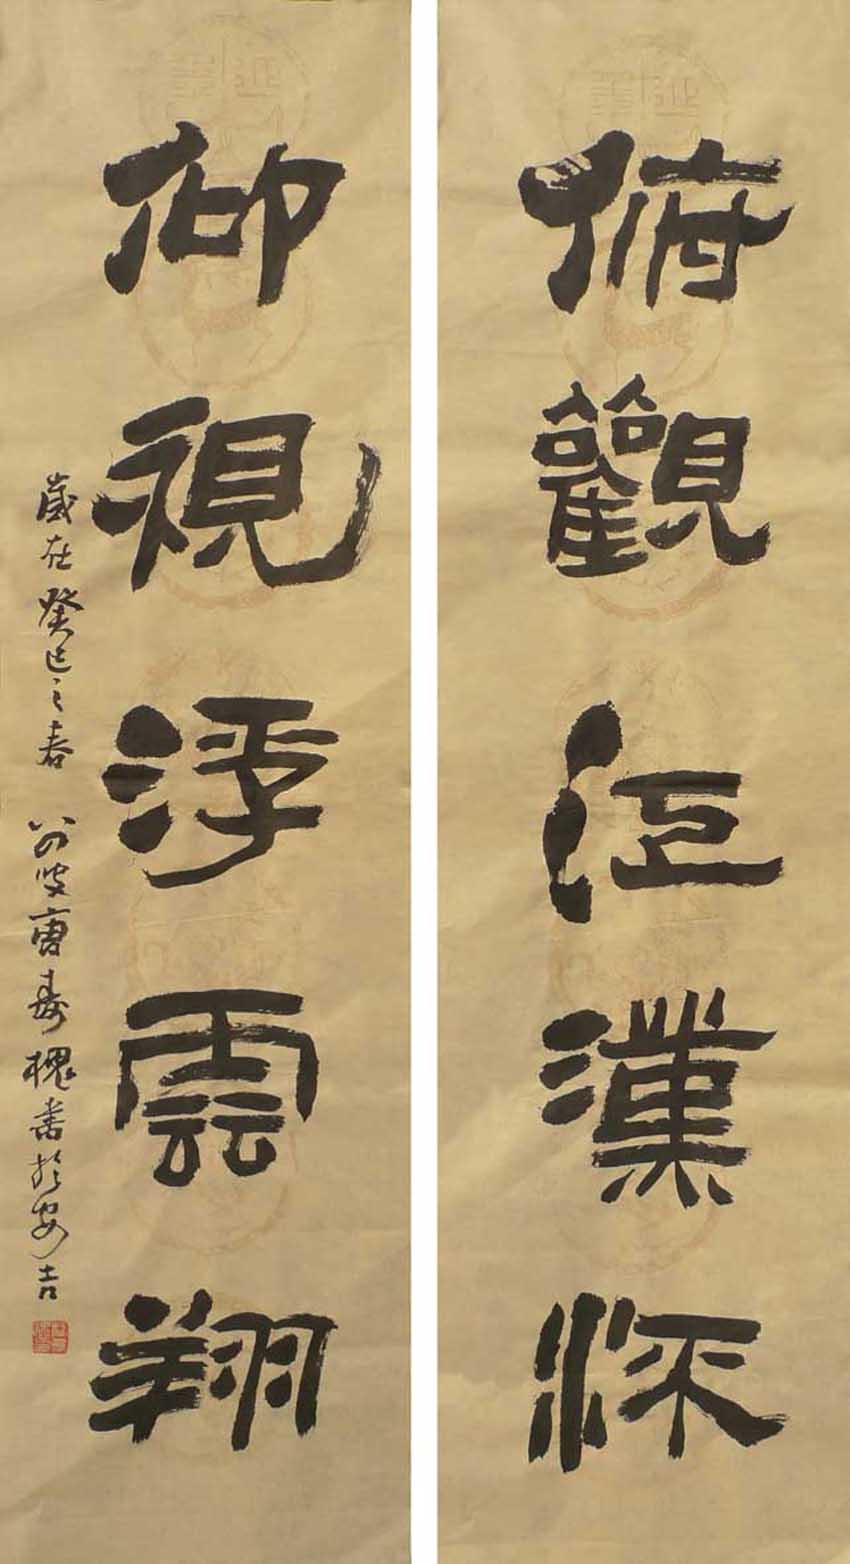 俯觀江漢流
仰視浮雲翔
歲在癸巳之春 八四叟唐寿槐書於安吉